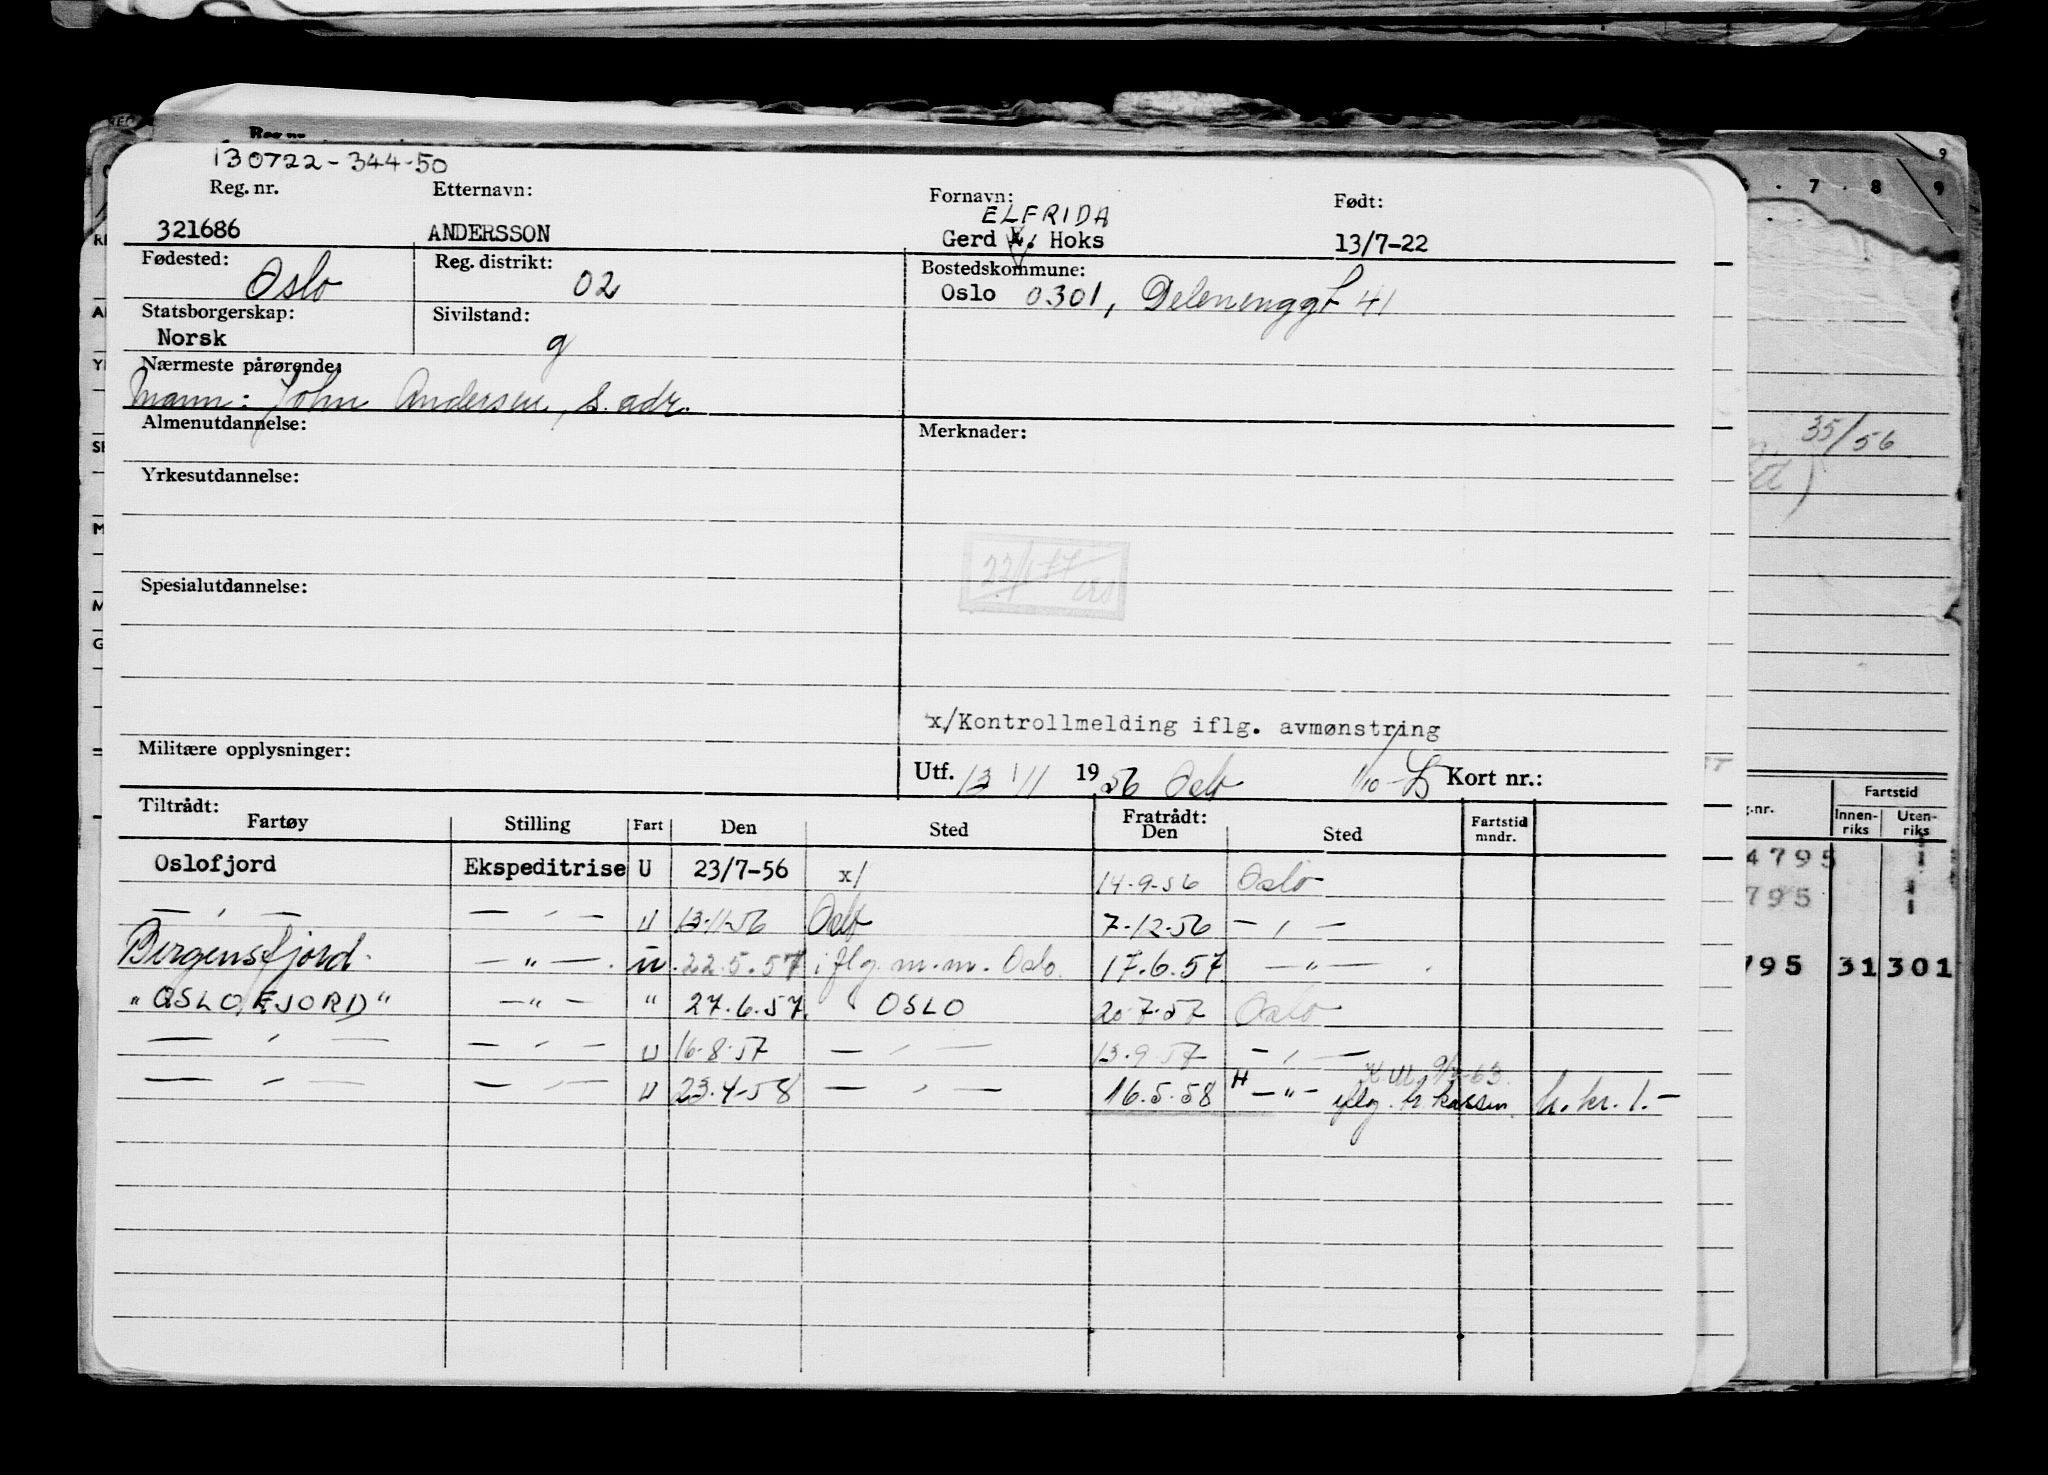 130722-344-50
Reg. nr. Etternavn: Fornavn: Født:
ELFRIDA
321686 ANDERSSON Gerd E. Hoks 13/7-22
Fødested: Reg. distrikt: Bostedskommune:
Oslo 02 Oslo 0301, Delenenggt 41
Statsborgerskap: Sivilstand:
Norsk g
Nærmeste pårørende:
Mann: John Andersen, s. adr.
Almenutdannelse: Merknader:
Yrkesutdannelse:
Spesialutdannelse:
x/Kontrollmelding iflg. avmønstring
Militære opplysninger:
Utf. 13/11 1956 Oslo 1/10 Kort nr.:
Tiltrådt: Fratrådt:
Fartøy Stilling Fart Den Sted Den Sted Fartstid mndr.
Oslofjord Ekspeditrise U 23/7-56 x/ 14-9-56 Oslo
— , — — , — U 13-11-56 Oslo 7-12-56 — , —
Bergensfjord — " — U 22.5.57 iflg. m.m. Oslo. 17.6.57 — " —
"OSLOFJORD" — " — " 27.6.57. OSLO 20-7-57 Oslo
— , — — , — U 16-8-57 — , — 13-9-57 — , —
— , — — , — U 23-4-58 — , — 16.5.58 H — " — iflg. h. kassen h. kr. 1.-
Reg. nr.
7 8 9
9
35/56
Fartstid
Innenriks Utenriks
4795
795
795 31 301